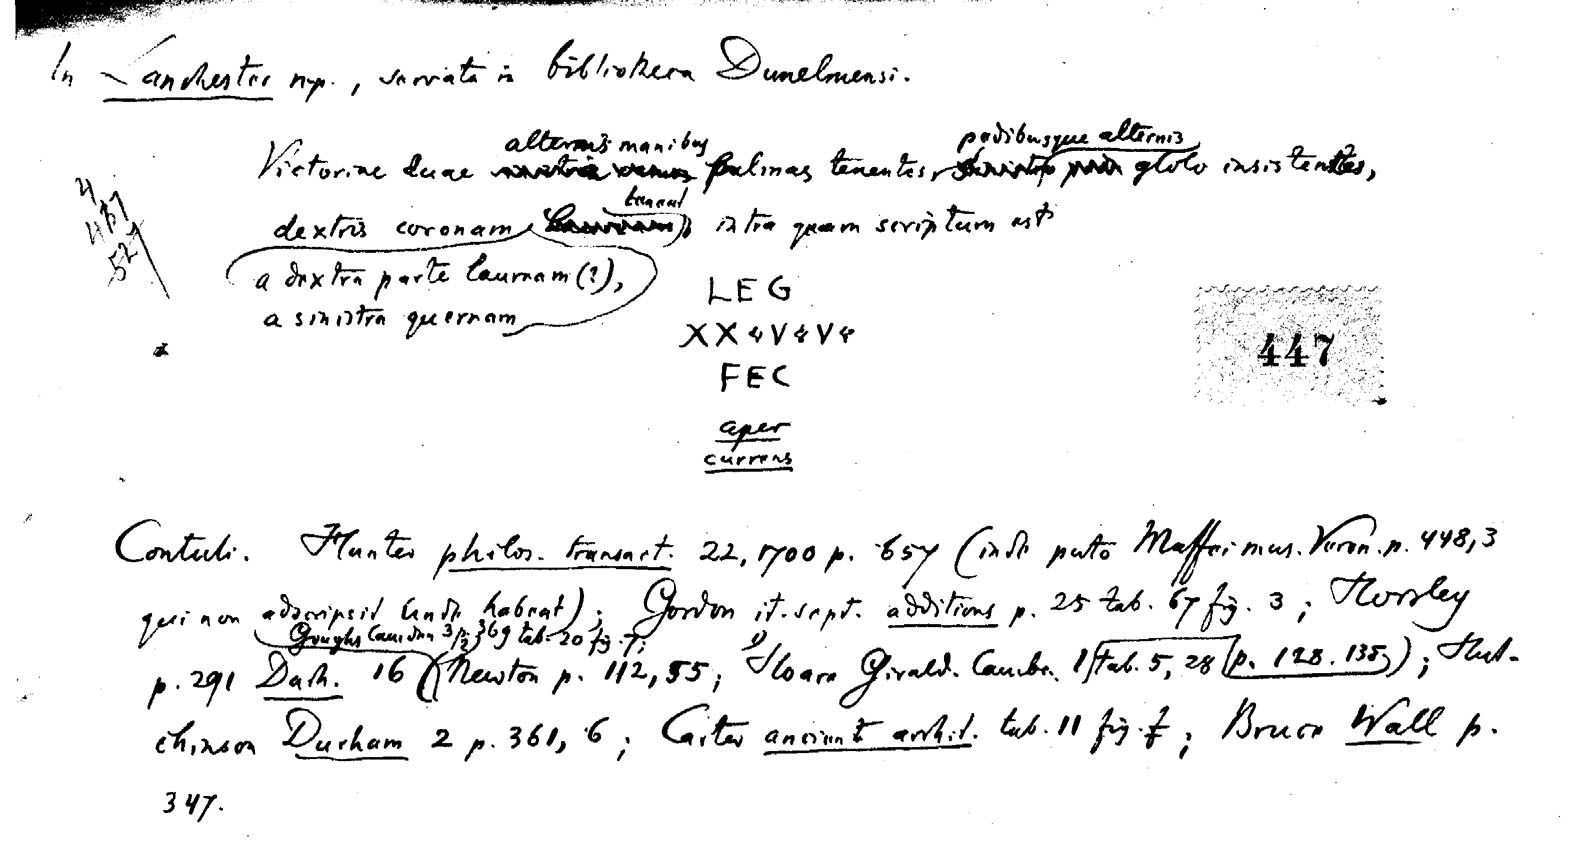 In Lanchester rep., servata in bibliotheca Dunelmensi.
alternis manibus pedibusque alternis
Victoriae duae palmas tenentes, globo insistentes,
tenent
dextris coronam, intra quam scriptum est
4
487
527
a dextra parte lauream (?),
a sinistra quernam
LEG
XX V V
FEC
aper
currens
447
Contuli. Hunter philos. transact. 22, 1700 p. 657 (inde puto Maffei mus. Veron. p. 448, 3
qui non adscripsit unde habeat); Gordon it. sept. additions p. 25 tab. 67 fig. 3; Horsley
Goughs Camden 3 p. 369 tab. 20 fig. 7;
p. 291 Durh. 16 (Newton p. 112, 55; Hoare Girald. Cambr. 1 tab. 5, 28 p. 128. 135); Hut-
chinson Durham 2 p. 361, 6; Carter ancient archit. tab. 11 fig. f; Bruce Wall p.
347.